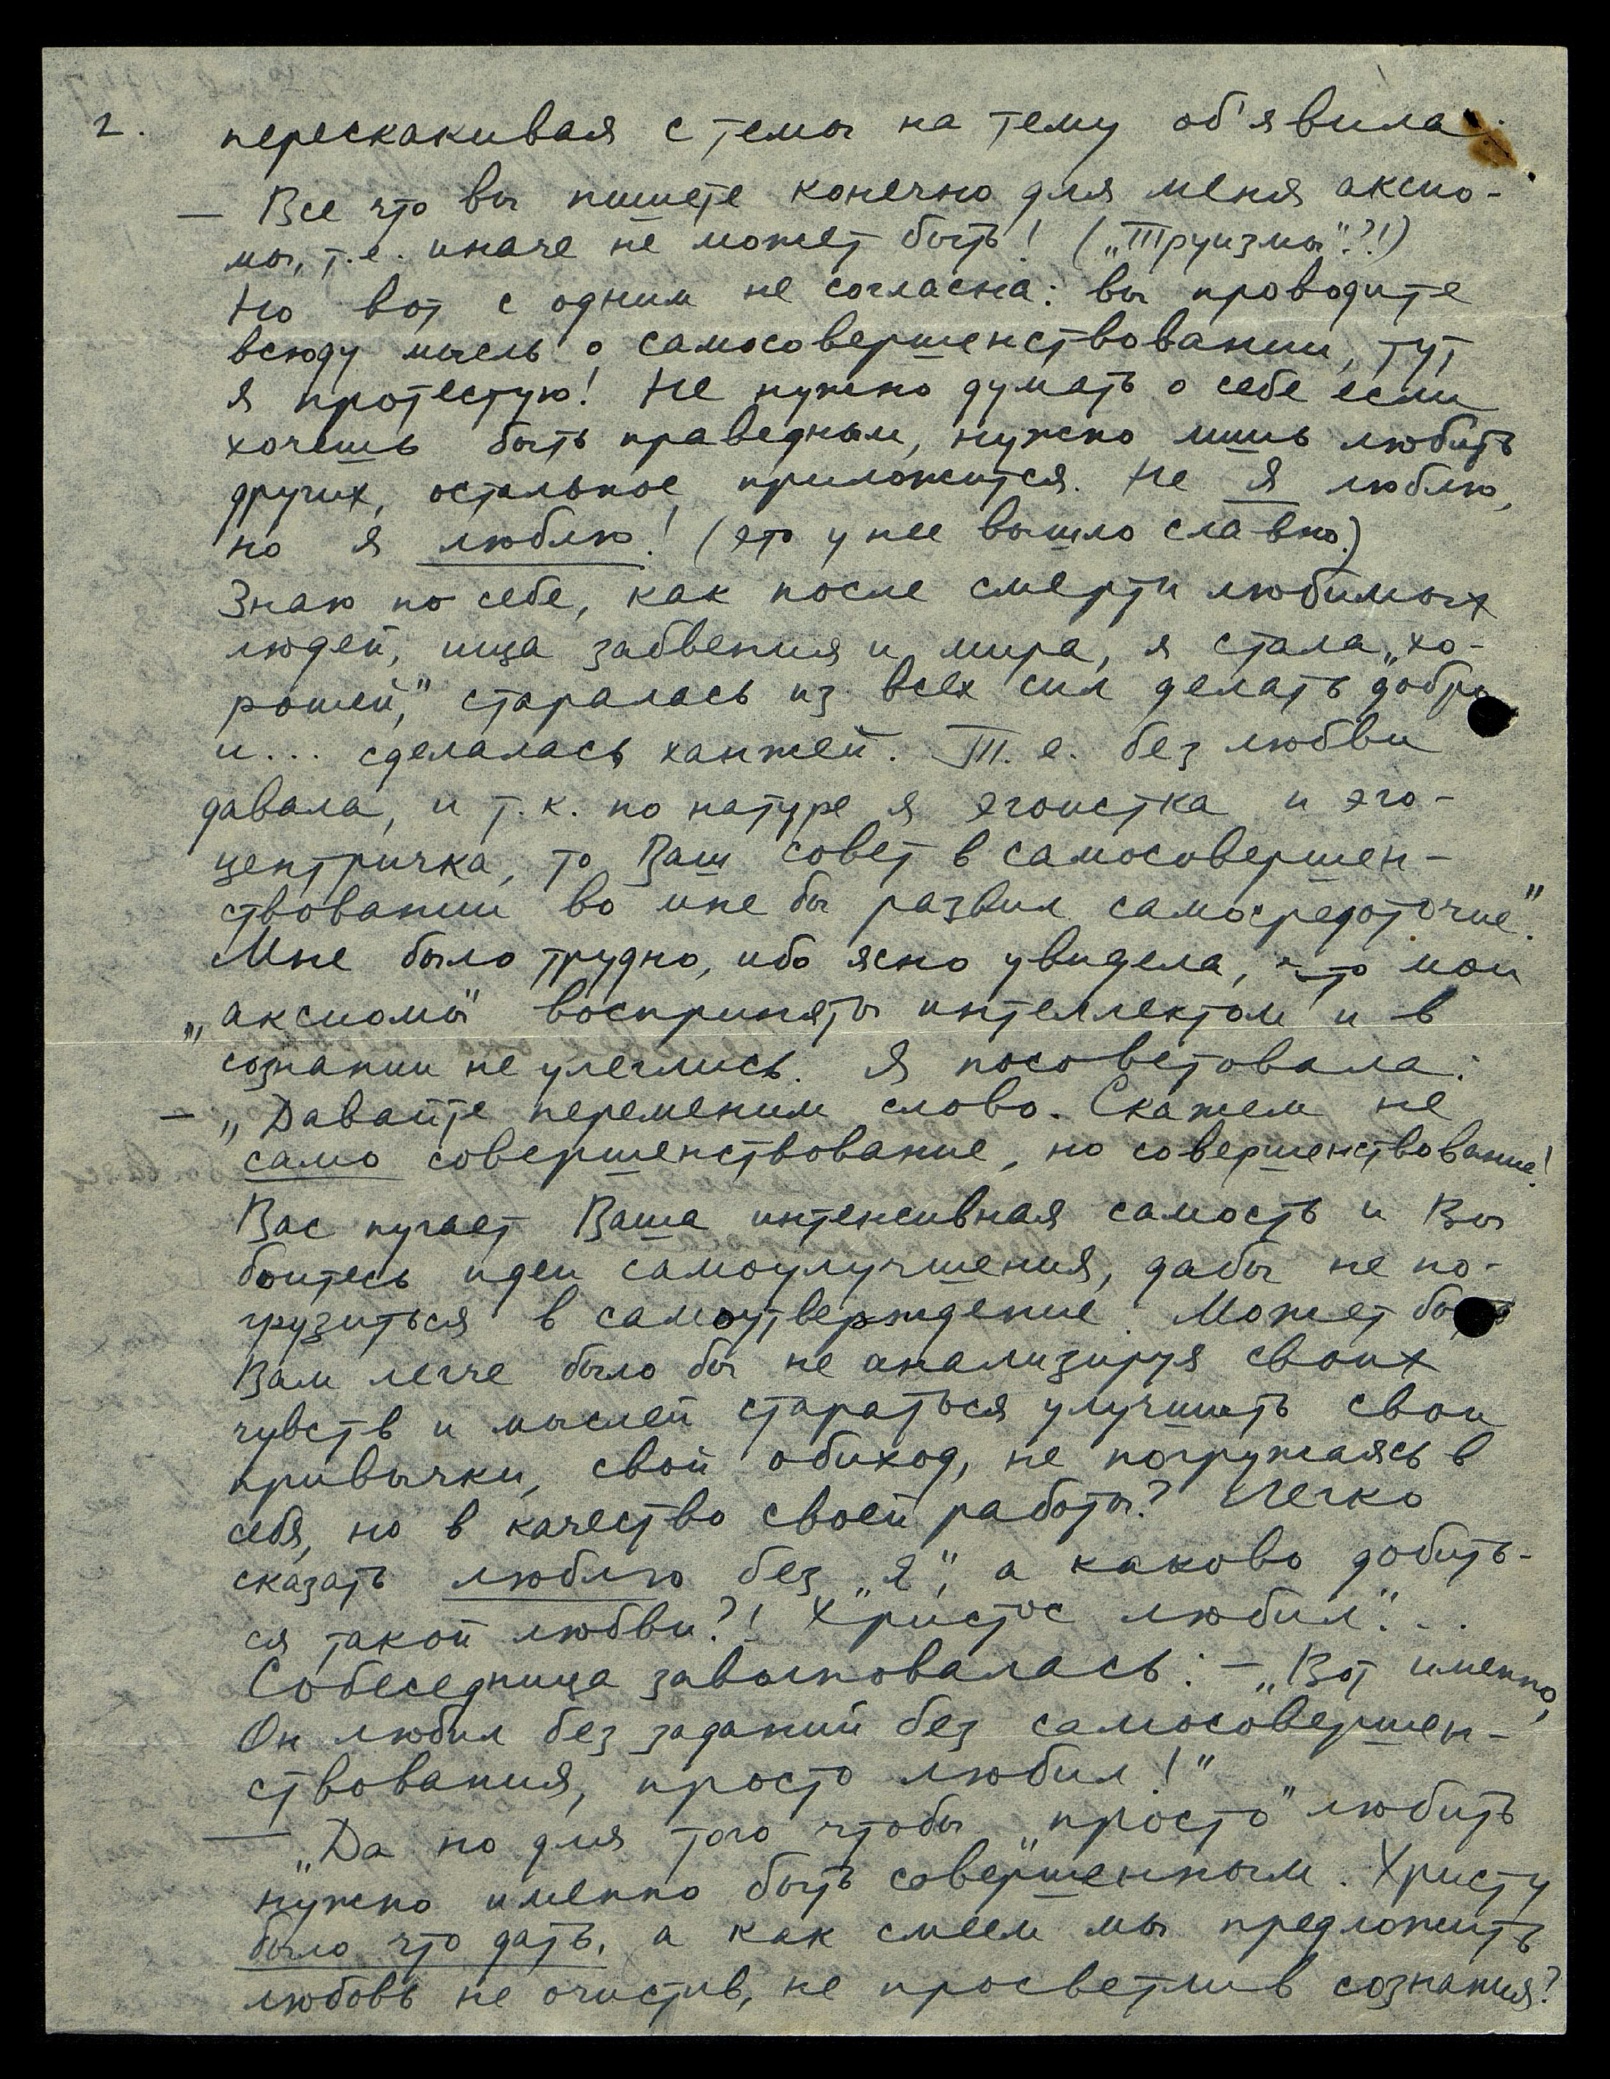 2. перескакивая с темы на тему об'явила:
— Все что вы пишете конечно для меня аксио-
мы, т.е. иначе не может быть! („Труизмы"?!)
Но вот с одним не согласна: вы проводите
всюду мысль о самосовершенствовании, тут
я протестую! Не нужно думать о себе если
хочешь быть праведным, нужно лишь любить
других, остальное приложится. Не я люблю,
но я люблю! (это у нее вышло славно.)
Знаю по себе, как после смерти любимых
людей, ища забвения и мира, я стала „хо-
рошей," старалась из всех сил делать добро
и... сделалась ханжей. Т.е. без любви
давала, и т.к. по натуре я эгоистка и эго-
центричка, то Ваш совет в самосовершен-
ствовании во мне бы развил самосредоточие".
Мне было трудно, ибо ясно увидела, что мои
„аксиомы" восприняты интеллектом и в
сознании не улеглись. Я посоветовала:
— „Давайте переменим слово. Скажем не
само совершенствование, но совершенствование!
Вас пугает Ваша интенсивная самость и Вы
боитесь идеи самоулучшения, дабы не по-
грузиться в самоутверждение. Может быть
Вам легче было бы не анализируя своих
чувств и мыслей стараться улучшить свои
привычки, свой обиход, не погружаясь в
себя, но в качество своей работы? Легко
сказать люблю без „я", а каково добить-
ся такой любви?! Христос любил"...
Собеседница заволновалась: — „Вот именно,
Он любил без заданий без самосовершен-
ствования, просто любил!"
— „Да но для того чтобы „просто" любить
нужно именно быть совершенным. Христу
было что дать, а как смеем мы предложить
любовь не очистив, не просветлив сознания?